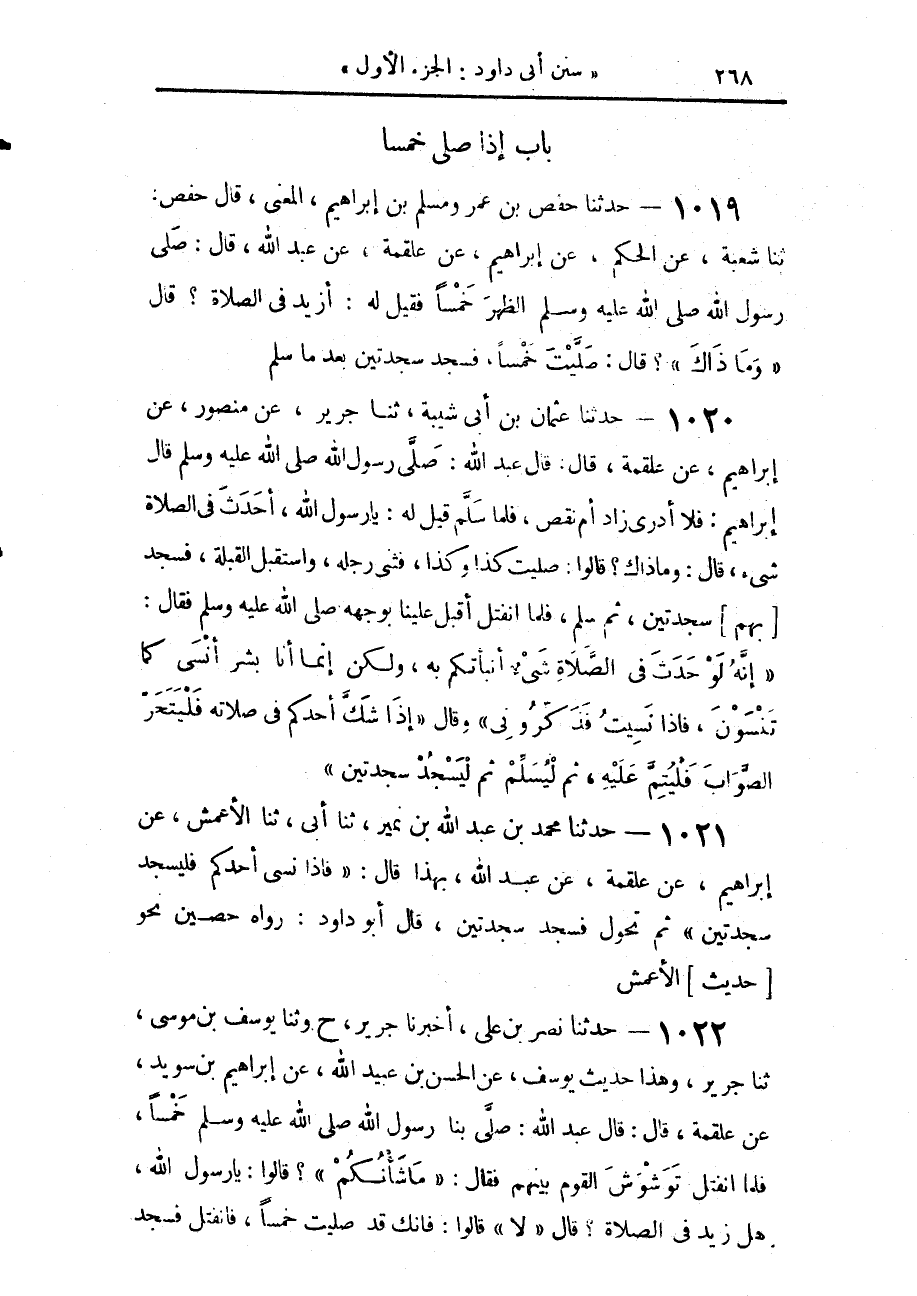 ٢٦٨ « سنن أبى داود : الجزء الأول »
باب إذا صلى خمسا
١٠١٩ — حدثنا حفص بن عمر ومسلم بن إبراهيم ، المعنى ، قال حفص:
ثنا شعبة ، عن الحكم ، عن إبراهيم ، عن علقمة ، عن عبد الله ، قال : صَلى
رسول الله صلى الله عليه وسلم الظهرَ خَمْساً فقيل له : أزيد فى الصلاة ؟ قال
« وَمَا ذَاكَ » ؟ قال : صَلَّيْتَ خَمْساً ، فسجد سجدتين بعد ما سلم
١٠٢٠ — حدثنا عثمان بن أبى شيبة ، ثنا جرير ، عن منصور ، عن
إبراهيم ، عن علقمة ، قال: قال عبد الله : صَلَّى رسول الله صلى الله عليه وسلم قال
إبراهيم : فلا أدرى زاد أم نقص ، فلما سَلَّم قيل له : يارسول الله ، أحَدَثَ فى الصلاة
شىء ، قال : وماذاك ؟ قالوا : صليت كذا وكذا ، فثنى رجله ، واستقبل القبلة ، فسجد
[ بهم ] سجدتين ، ثم سلم ، فلما انفتل أقبل علينا بوجهه صلى الله عليه وسلم فقال :
« إنَّهُ لَوْ حَدَثَ فى الصَّلَاةِ شَىْءٌ أنبأتكم به ، ولكن إنما أنا بشر أنْسَى كما
تَنْسَوْنَ ، فاذا نَسِيتُ فَذَكِّرُونِى » وقال « إذَا شَكَّ أحدكم فى صلاته فَلْيَتَحَرَّ
الصَّوَابَ فَلْيُتِمَّ عَلَيْهِ ، ثم لْيُسَلِّمْ ثم لْيَسْجُدْ سجدتين »
١٠٢١ — حدثنا محمد بن عبد الله بن نمير ، ثنا أبى ، ثنا الأعمش ، عن
إبراهيم ، عن علقمة ، عن عبد الله ، بهذا قال : « فاذا نسى أحدكم فليسجد
سجدتين » ثم تحول فسجد سجدتين ، قال أبو داود : رواه حصين نحو
[ حديث ] الأعمش
١٠٢٢ — حدثنا نصر بن على ، أخبرنا جرير ، ح وثنا يوسف بن موسى ،
ثنا جرير ، وهذا حديث يوسف ، عن الحسن بن عبيد الله ، عن إبراهيم بن سويد ،
عن علقمة ، قال : قال عبد الله : صلَّى بنا رسول الله صلى الله عليه وسلم خَمْساً ،
فلما انفتل تَوَشْوَشَ القوم بينهم فقال : « مَاشَأْنُكُمْ » ؟ قالوا : يارسول الله ،
هل زيد فى الصلاة ؟ قال « لا » قالوا : فانك قد صليت خمساً ، فانفتل فسجد